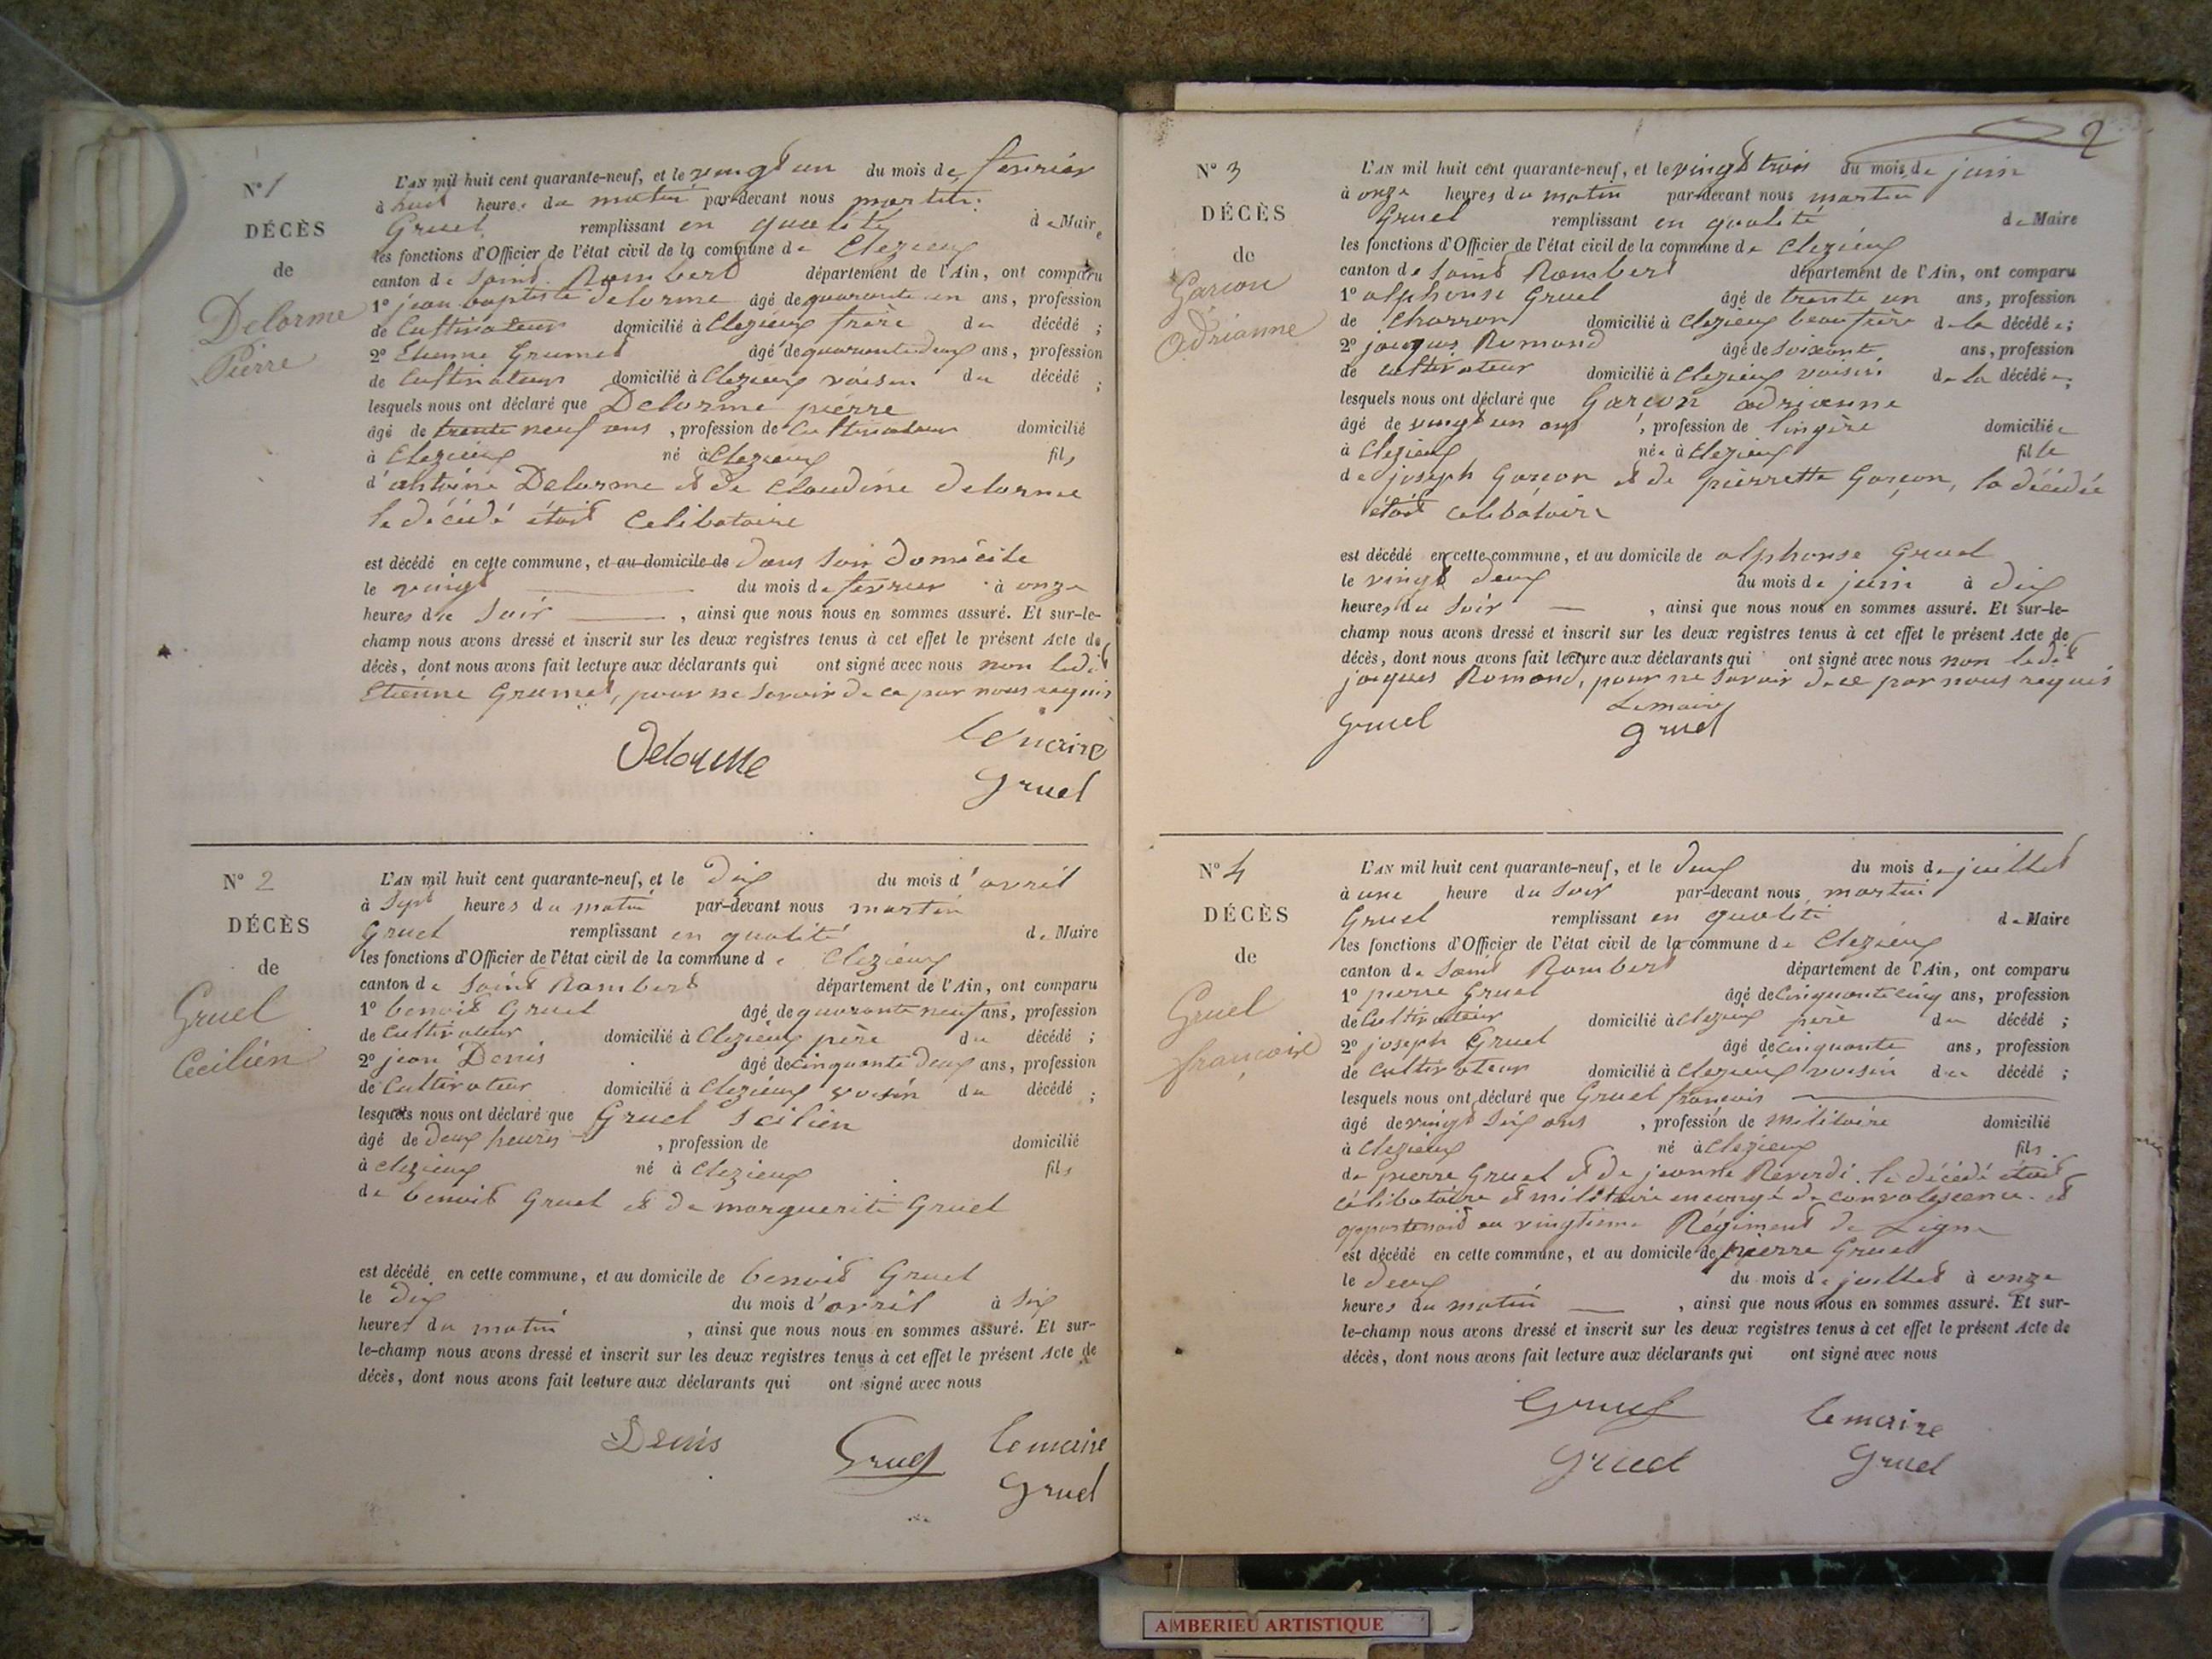 N° 1
DÉCÈS
de
Delorme
Pierre
L'AN mil huit cent quarante-neuf, et le vingt un du mois de fevrier
à huit heures du matin par-devant nous martin
Gruel remplissant en qualité de Maire
les fonctions d'Officier de l'état civil de la commune de Clezieux
canton de Saint Rambert département de l'Ain, ont comparu
1° jean baptiste Delorme âgé de quarante un ans, profession
de Cultivateur domicilié à Clezieux frère du décédé ;
2° Etienne Grumet âgé de quarante deux ans, profession
de Cultivateur domicilié à Clezieux voisin du décédé ;
lesquels nous ont déclaré que Delorme pierre
âgé de trente neuf ans , profession de Cultivateur domicilié
à Clezieux né à Clezieux fils
d'antoine Delorme et de Claudine Delorme
le décédé était Celibataire
est décédé en cette commune, et au domicile de dans son Domicile
le vingt du mois de fevrier à onze
heures du soir , ainsi que nous nous en sommes assuré. Et sur-le-
champ nous avons dressé et inscrit sur les deux registres tenus à cet effet le présent Acte de
décès, dont nous avons fait lecture aux déclarants qui ont signé avec nous non ledit
Etienne Grumet, pour ne savoir de ce par nous requis
Delorme
le maire
Gruel
N° 2
DÉCÈS
de
Gruel
Cecilien
L'AN mil huit cent quarante-neuf, et le dix du mois d'avril
à sept heures du matin par-devant nous martin
Gruel remplissant en qualité de Maire
les fonctions d'Officier de l'état civil de la commune de Clezieux
canton de Saint Rambert département de l'Ain, ont comparu
1° benoit Gruel âgé de quarante neuf ans, profession
de Cultivateur domicilié à Clezieux père du décédé ;
2° jean Denis âgé de cinquante deux ans, profession
de Cultivateur domicilié à Clezieux voisin du décédé ;
lesquels nous ont déclaré que Gruel Scilien
âgé de deux heures , profession de domicilié
à Clezieux né à Clezieux fils
de benoit Gruel et de marguerite Gruel
est décédé en cette commune, et au domicile de benoit Gruel
le dix du mois d'avril à six
heures du matin , ainsi que nous nous en sommes assuré. Et sur-
le-champ nous avons dressé et inscrit sur les deux registres tenus à cet effet le présent Acte de
décès, dont nous avons fait lecture aux déclarants qui ont signé avec nous
Denis Gruel le maire
Gruel
2
N° 3
DÉCÈS
de
Garçon
adrianne
L'AN mil huit cent quarante-neuf, et le vingt trois du mois de juin
à onze heures du matin par-devant nous martin
Gruel remplissant en qualité de Maire
les fonctions d'Officier de l'état civil de la commune de Clezieux
canton de Saint Rambert département de l'Ain, ont comparu
1° alphonse Gruel âgé de trente un ans, profession
de Charron domicilié à Clezieux beau frère de la décédée ;
2° jacques Romand âgé de soixante ans, profession
de cultivateur domicilié à Clezieux voisin de la décédée ;
lesquels nous ont déclaré que Garçon adrianne
âgé de vingt un ans , profession de lingère domiciliée
à Clezieux née à Clezieux fille
de joseph Garçon et de pierrette Garçon, la décédée
était celibataire
est décédé en cette commune, et au domicile de alphonse Gruel
le vingt deux du mois de juin à dix
heures du soir , ainsi que nous nous en sommes assuré. Et sur-le-
champ nous avons dressé et inscrit sur les deux registres tenus à cet effet le présent Acte de
décès, dont nous avons fait lecture aux déclarants qui ont signé avec nous non ledit
jacques Romand, pour ne savoir de ce par nous requis
Gruel Le maire
Gruel
N° 4
DÉCÈS
de
Gruel
françois
L'AN mil huit cent quarante-neuf, et le deux du mois de juillet
à une heure du soir par-devant nous martin
Gruel remplissant en qualité de Maire
les fonctions d'Officier de l'état civil de la commune de Clezieux
canton de Saint Rambert département de l'Ain, ont comparu
1° pierre Gruel âgé de cinquante cinq ans, profession
de Cultivateur domicilié à Clezieux père du décédé ;
2° joseph Gruel âgé de cinquante ans, profession
de Cultivateur domicilié à Clezieux voisin du décédé ;
lesquels nous ont déclaré que Gruel françois
âgé de vingt six ans , profession de militaire domicilié
à Clezieux né à Clezieux fils
de pierre Gruel et de jeanne Reverdi. le décédé était
célibataire et militaire en congé de convalescence. et
appartenait au vingtieme Régiment de Ligne
est décédé en cette commune, et au domicile de pierre Gruel
le deux du mois de juillet à onze
heures du matin , ainsi que nous nous en sommes assuré. Et sur-
le-champ nous avons dressé et inscrit sur les deux registres tenus à cet effet le présent Acte de
décès, dont nous avons fait lecture aux déclarants qui ont signé avec nous
Gruel le maire
Gruel Gruel
AMBERIEU ARTISTIQUE